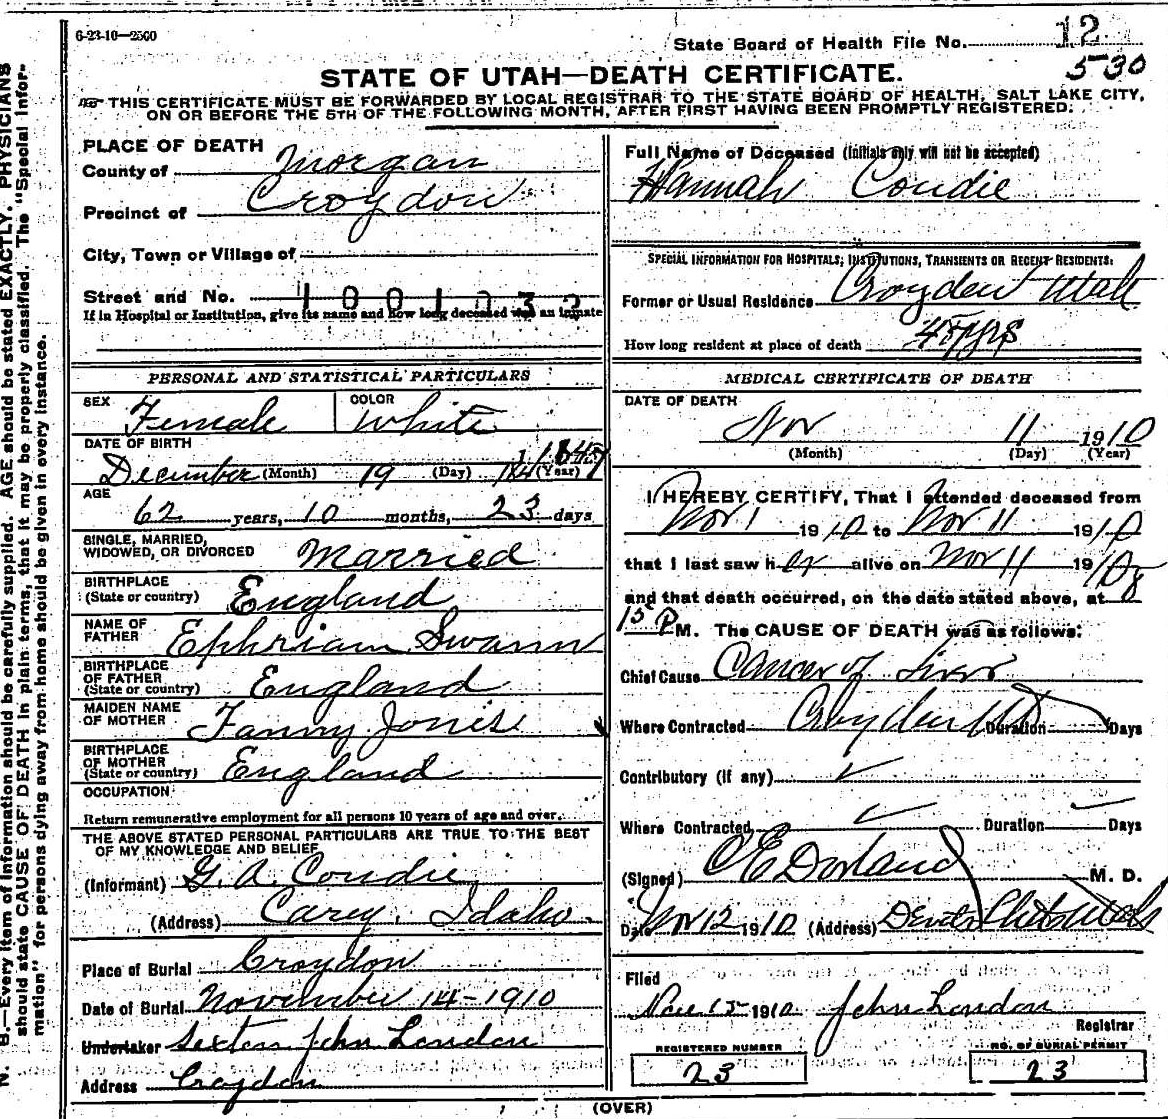 6-23-10-2500
State Board of Health File No. 12
530
STATE OF UTAH—DEATH CERTIFICATE.
THIS CERTIFICATE MUST BE FORWARDED BY LOCAL REGISTRAR TO THE STATE BOARD OF HEALTH, SALT LAKE CITY,
ON OR BEFORE THE 5TH OF THE FOLLOWING MONTH, AFTER FIRST HAVING BEEN PROMPTLY REGISTERED.
N. B.—Every item of information should be carefully supplied. AGE should be stated EXACTLY. PHYSICIANS
should state CAUSE OF DEATH in plain terms, that it may be properly classified. The "Special Infor-
mation" for persons dying away from home should be given in every instance.
PLACE OF DEATH
County of Morgan
Precinct of Croydon
City, Town or Village of
Street and No. 1001032
If in Hospital or Institution, give its name and how long deceased was an inmate
PERSONAL AND STATISTICAL PARTICULARS
SEX Female COLOR White
DATE OF BIRTH
December (Month) 19 (Day) (Year)
AGE
62 years, 10 months, 23 days
SINGLE, MARRIED,
WIDOWED, OR DIVORCED Married
BIRTHPLACE
(State or country) England
NAME OF
FATHER Ephriam Swann
BIRTHPLACE
OF FATHER
(State or country) England
MAIDEN NAME
OF MOTHER Fanny Jonise
BIRTHPLACE
OF MOTHER
(State or country) England
OCCUPATION
Return remunerative employment for all persons 10 years of age and over.
THE ABOVE STATED PERSONAL PARTICULARS ARE TRUE TO THE BEST
OF MY KNOWLEDGE AND BELIEF
(Informant) G. A. Condie
(Address) Carey, Idaho
Place of Burial Croydon
Date of Burial November 14-1910
Undertaker Sexton John London
Address Croydon
Full Name of Deceased (Initials only will not be accepted)
Hannah Condie
SPECIAL INFORMATION FOR HOSPITALS, INSTITUTIONS, TRANSIENTS OR RECENT RESIDENTS:
Former or Usual Residence Croyden Utah
How long resident at place of death 45 yrs
MEDICAL CERTIFICATE OF DEATH
DATE OF DEATH
Nov 11 1910
(Month) (Day) (Year)
I HEREBY CERTIFY, That I attended deceased from
Nov 1 1910 to Nov 11 1910
that I last saw her alive on Nov 11 1910
and that death occurred, on the date stated above, at 8
15 P M. The CAUSE OF DEATH was as follows:
Chief Cause Cancer of Liver
Where Contracted Croyden Ut Duration Days
Contributory (if any)
Where Contracted Duration Days
(Signed) C E Dorland M. D.
Date Nov 12 1910 (Address) Devils Slide Utah
Filed
Nov 15 1910 John London
Registrar
REGISTERED NUMBER
23
NO. OF BURIAL PERMIT
23
(OVER)